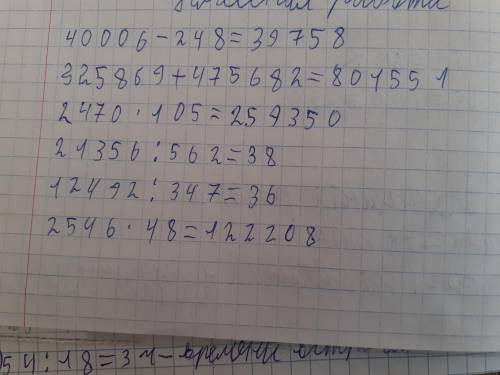 работа
40006-248=39758
325869+475682=801551
2470·105=259350
21356:562=38
12492:347=36
2546·48=122208
54:18=3ч-времени